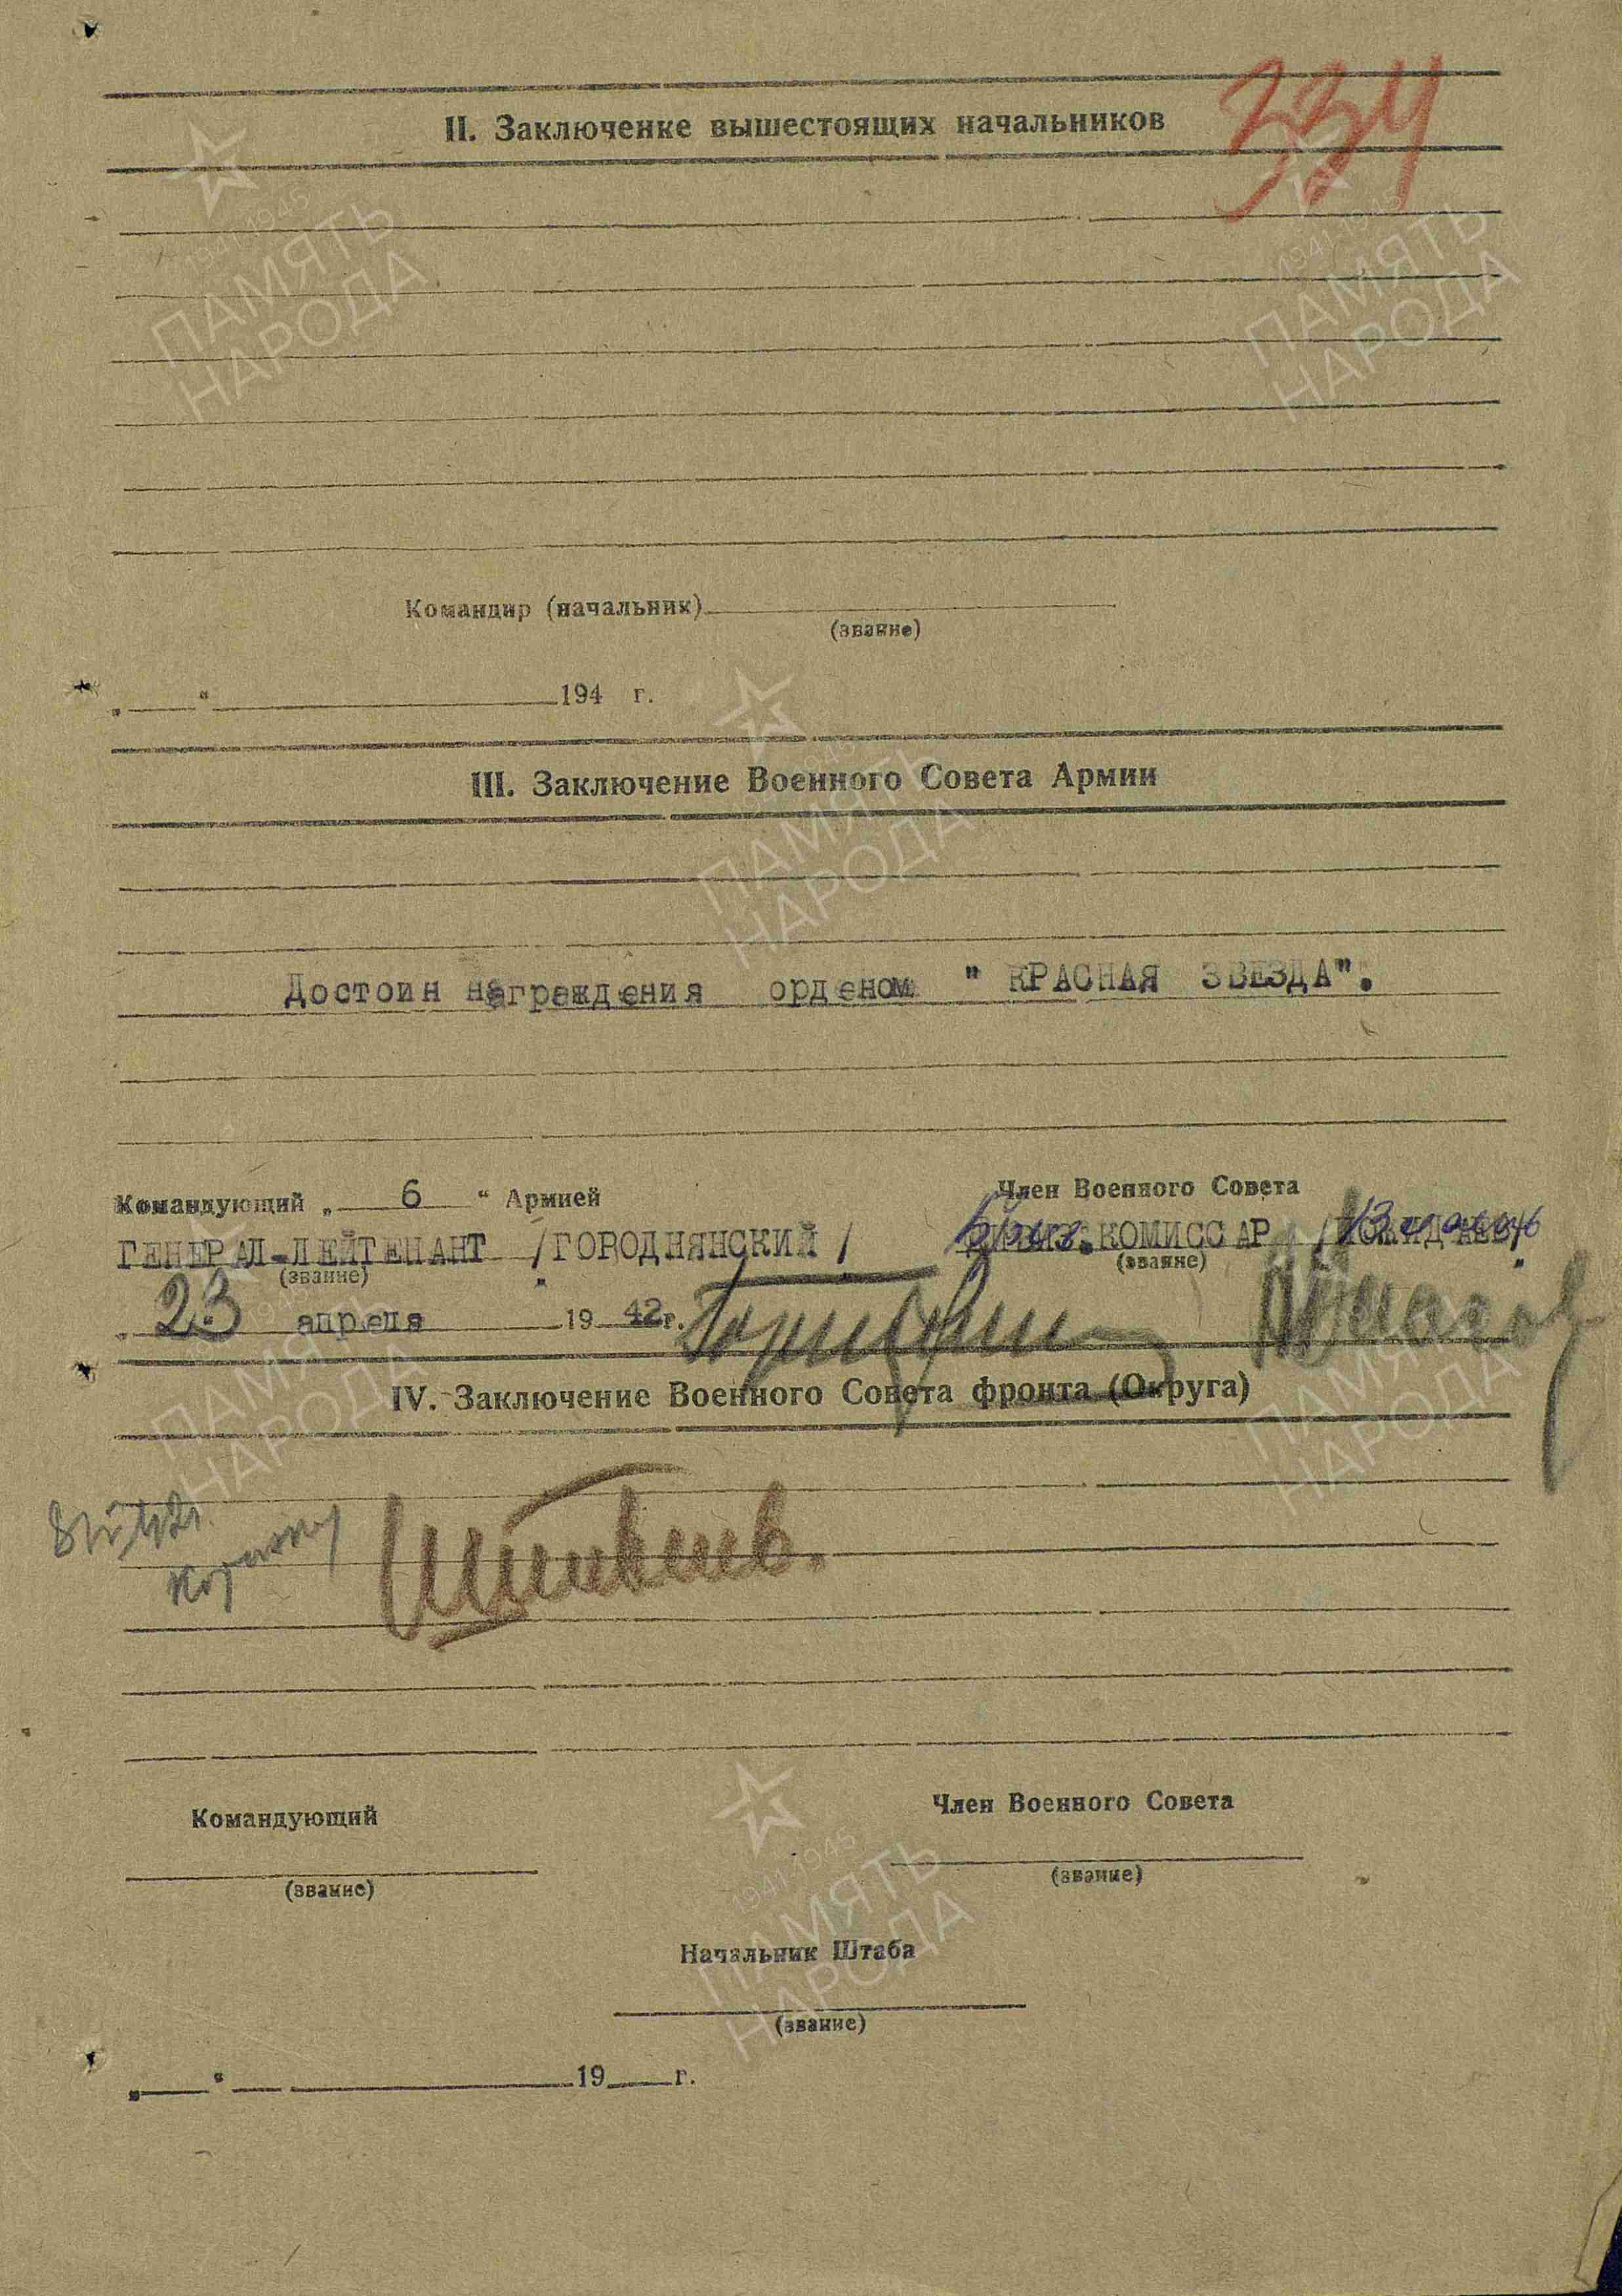 334
II. Заключенке вышестоящих начальников
Командир (начальник)
(звание)
„ “ 194 г.
III. Заключение Военного Совета Армии
Достоин награждения орденом " КРАСНАЯ ЗВЕЗДА".
Командующий „ 6 “ Армией
Член Военного Совета
ГЕНЕРАЛ-ЛЕЙТЕНАНТ /ГОРОДНЯНСКИЙ/
КОМИССАР
(звание)
(звание)
„ 23 " апреля 19 42 г.
IV. Заключение Военного Совета фронта (Округа)
Командующий
Член Военного Совета
(звание)
(звание)
Начальник Штаба
(звание)
„ “ 19 г.
1941-1945
ПАМЯТЬ
НАРОДА